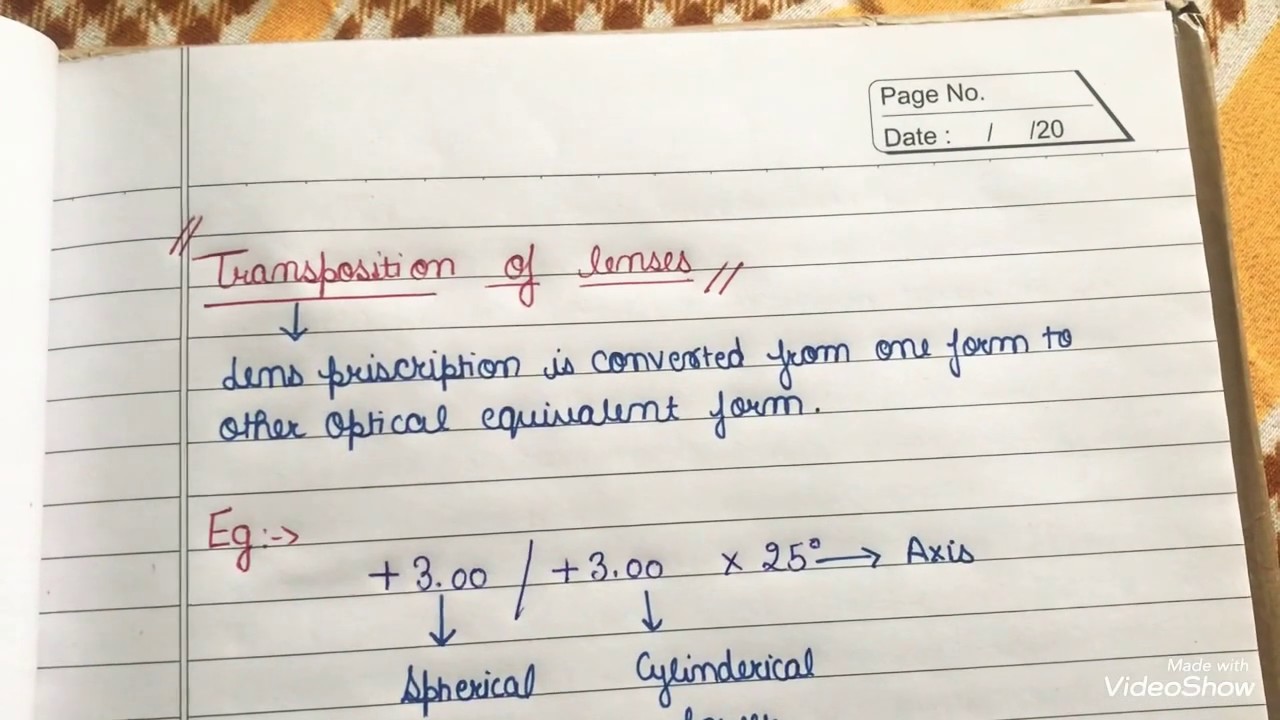 Page No.
Date : / /20
Transposition of lenses
Lens priscription is converted from one form to
other optical equivalent form.
Eg:->
+3.00 / +3.00 x 25° → Axis
Spherical Cylinderical
Made with
VideoShow